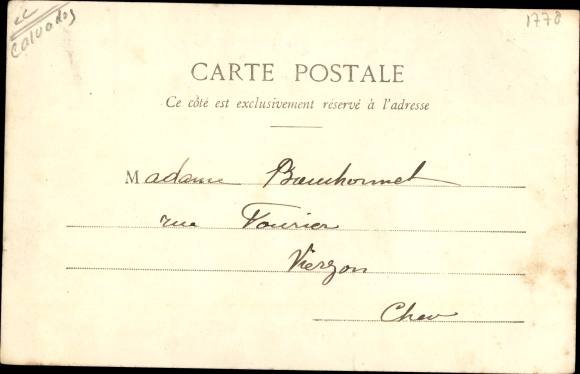 el
Calvados
1778
CARTE POSTALE
Ce côté est exclusivement réservé à l'adresse
Madame
rue Fourier
Vierzon
Cher